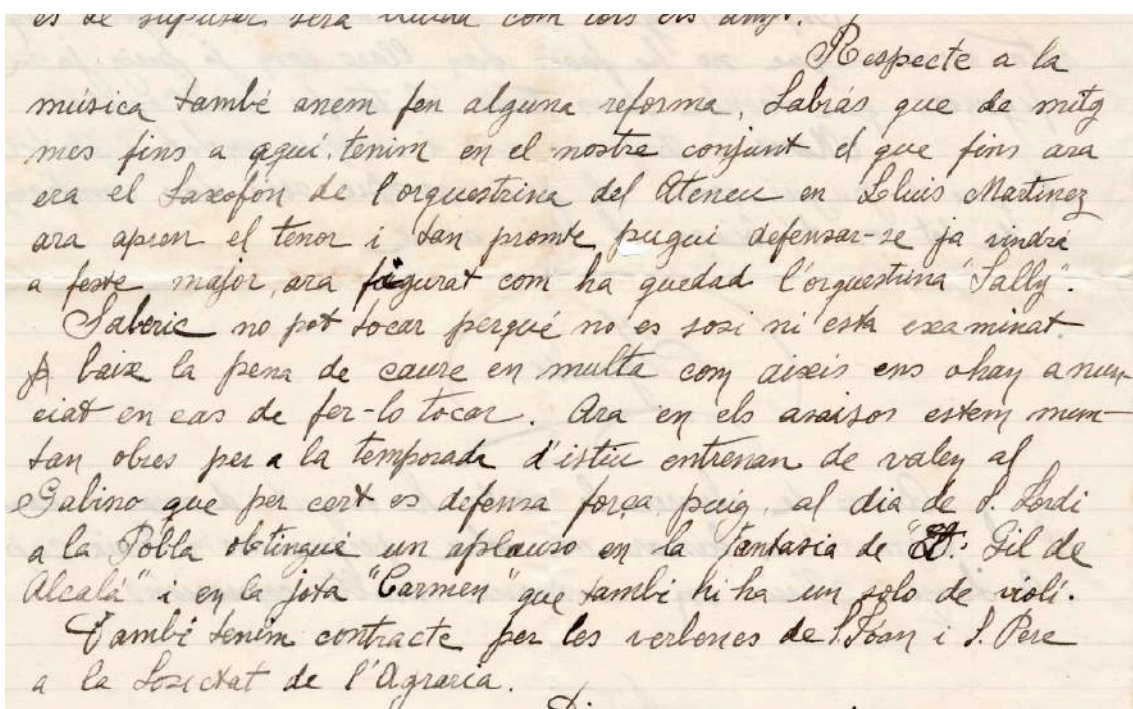 es de suposar sera com tots els anys.
Respecte a la
música també anem fen alguna reforma, Sabrás que de mitg
mes fins a aquí, tenim en el nostre conjunt el que fins ara
era el Saxofón de l'orquestrina del Ateneu en Lluis Martinez
ara apren el tenor i tan promte pugui defensar-se ja vindrá
a feste major, ara figurat com ha quedad l'orquestrina "Sally".
Saberic no pot tocar perqué no es sosi ni esta examinat
A baix la pena de caure en multa com aixis ens ohan anun-
ciat en cas de fer-lo tocar. Ara en els asaisos estem mun-
tan obres per a la temporada d'istiu entrenan de valen al
Galino que per cert es defensa força puig, al dia de S. Jordi
a la Pobla obtingué un aplauso en la fantasia de "D. Gil de
Alcalá" i en la jota "Carmen" que també hi ha un solo de violí.
També tenim contracte per les verbenes de S. Joan i S. Pere
a la Sosietat de l'Agraria.